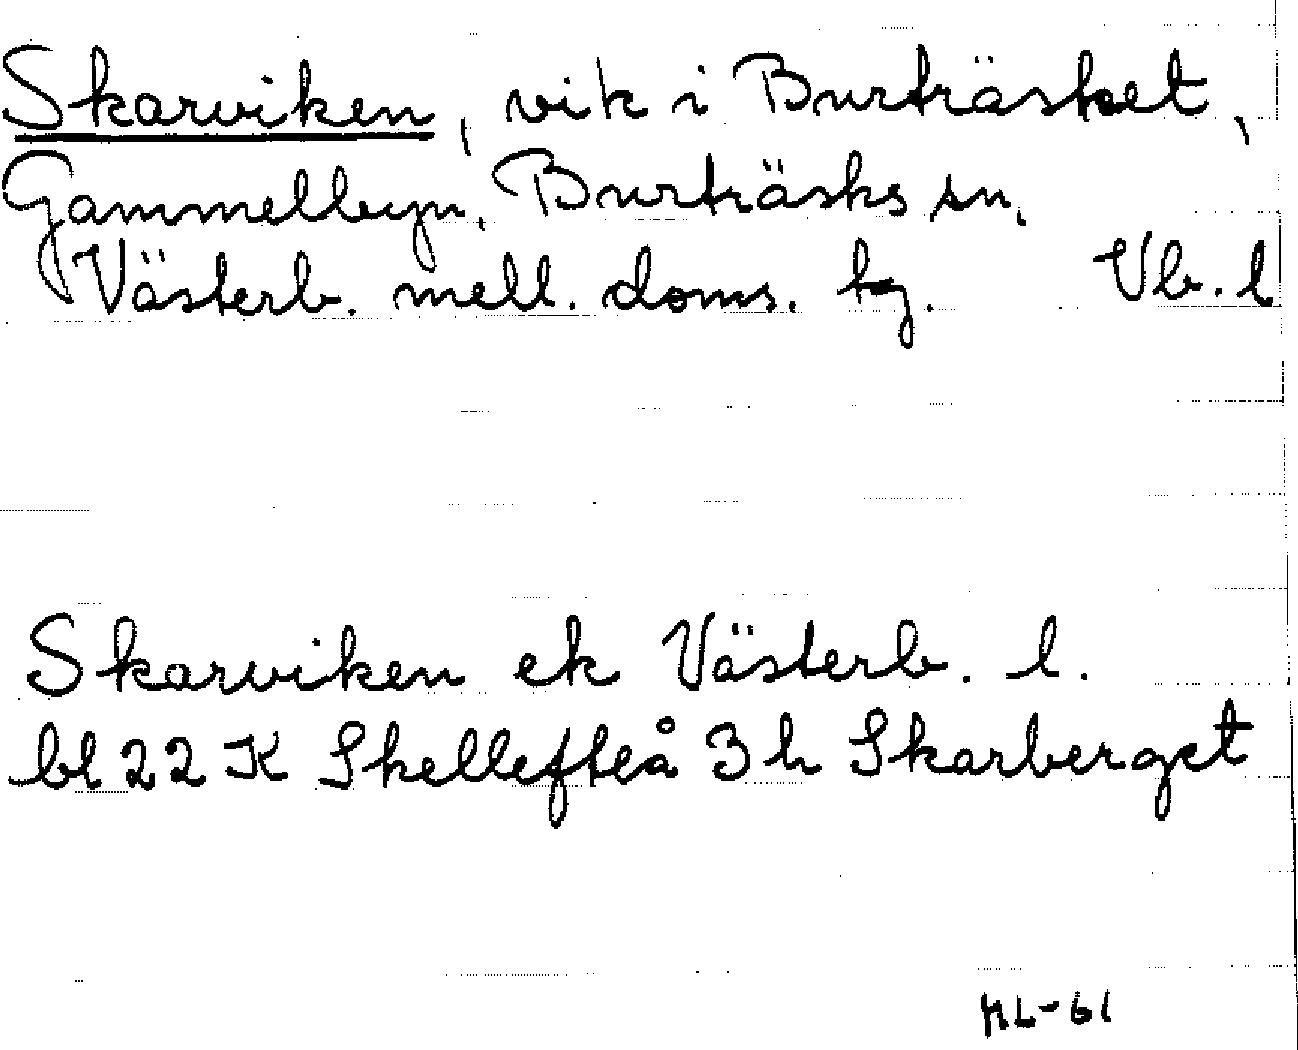 Skarviken, vik i Burträsket,
Gammelbyn, Burträsks sn,
Västerb. mell. doms. tg. Vb. l
Skarviken ek Västerb. l.
bl 22 K Skellefteå 3 h Skarberget
ML-61